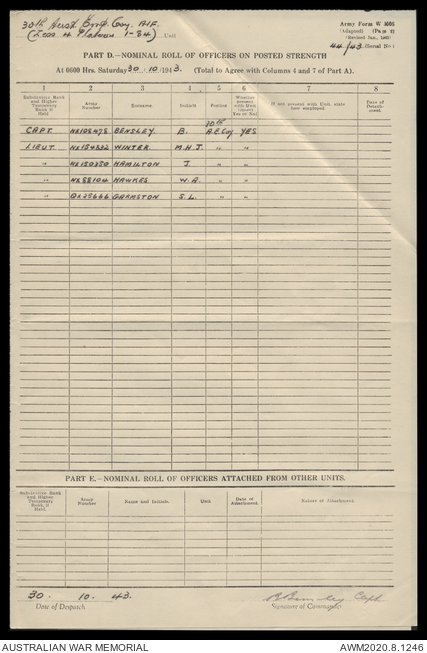 30th Aust. Emp. Coy. AIF.
(Less 4 Platoon 1-84) Unit
Army Form W 3008
(Adapted) (Page 2)
(Revised Jan., 1943)
44/43 (Serial No)
PART D.—NOMINAL ROLL OF OFFICERS ON POSTED STRENGTH
At 0600 Hrs. Saturday 30 . 10 . 1943. (Total to Agree with Columns 4 and 7 of Part A).
1 2 3 4 5 6 7 8
Substantive Rank and Higher Temporary Rank if Held
Army Number
Surname.
Initials
Posting
Whether present with Unit (insert Yes or No)
If not present with Unit, state how employed
Date of Detachment
30th
CAPT. BENSLEY. B. A.E. Coy YES
LIEUT. WINTER. M.H.J. " "
" HAMILTON J. " "
" HAWKES W.R. " "
" QX25666 S.L. " "
PART E.—NOMINAL ROLL OF OFFICERS ATTACHED FROM OTHER UNITS.
Substantive Rank and Higher Temporary Rank, if Held.
Army Number
Name and Initials.
Unit
Date of Attachment.
Nature of Attachment.
30. 10. 43.
Capt
Date of Despatch
Signature of Commander
AUSTRALIAN WAR MEMORIAL
AWM2020.8.1246